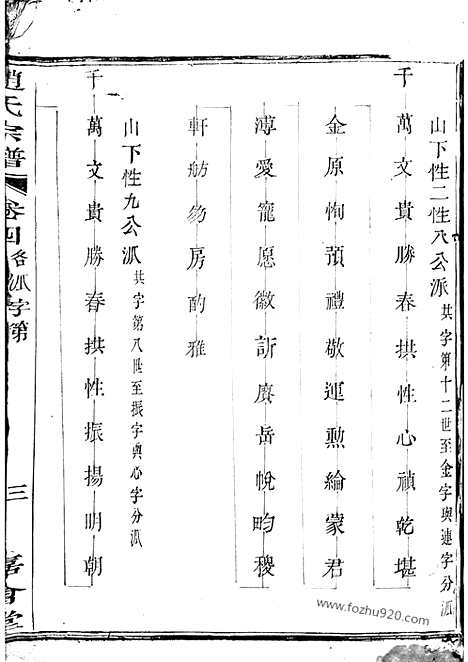 山下性二性八公派共字第十二世至金字與連字分派
千萬文貴勝春拱性心禎乾堪
金原恂預禮敬運勲綸蒙君
溥愛寵愿徽訢賡岳悅昀稷
軒舫芴房酌雅
山下性九公派共字第八世至振字與心字分派
千萬文貴勝春拱性振揚明朝
趙氏宗譜
卷四
各派字第
三
www.fozhu920.com